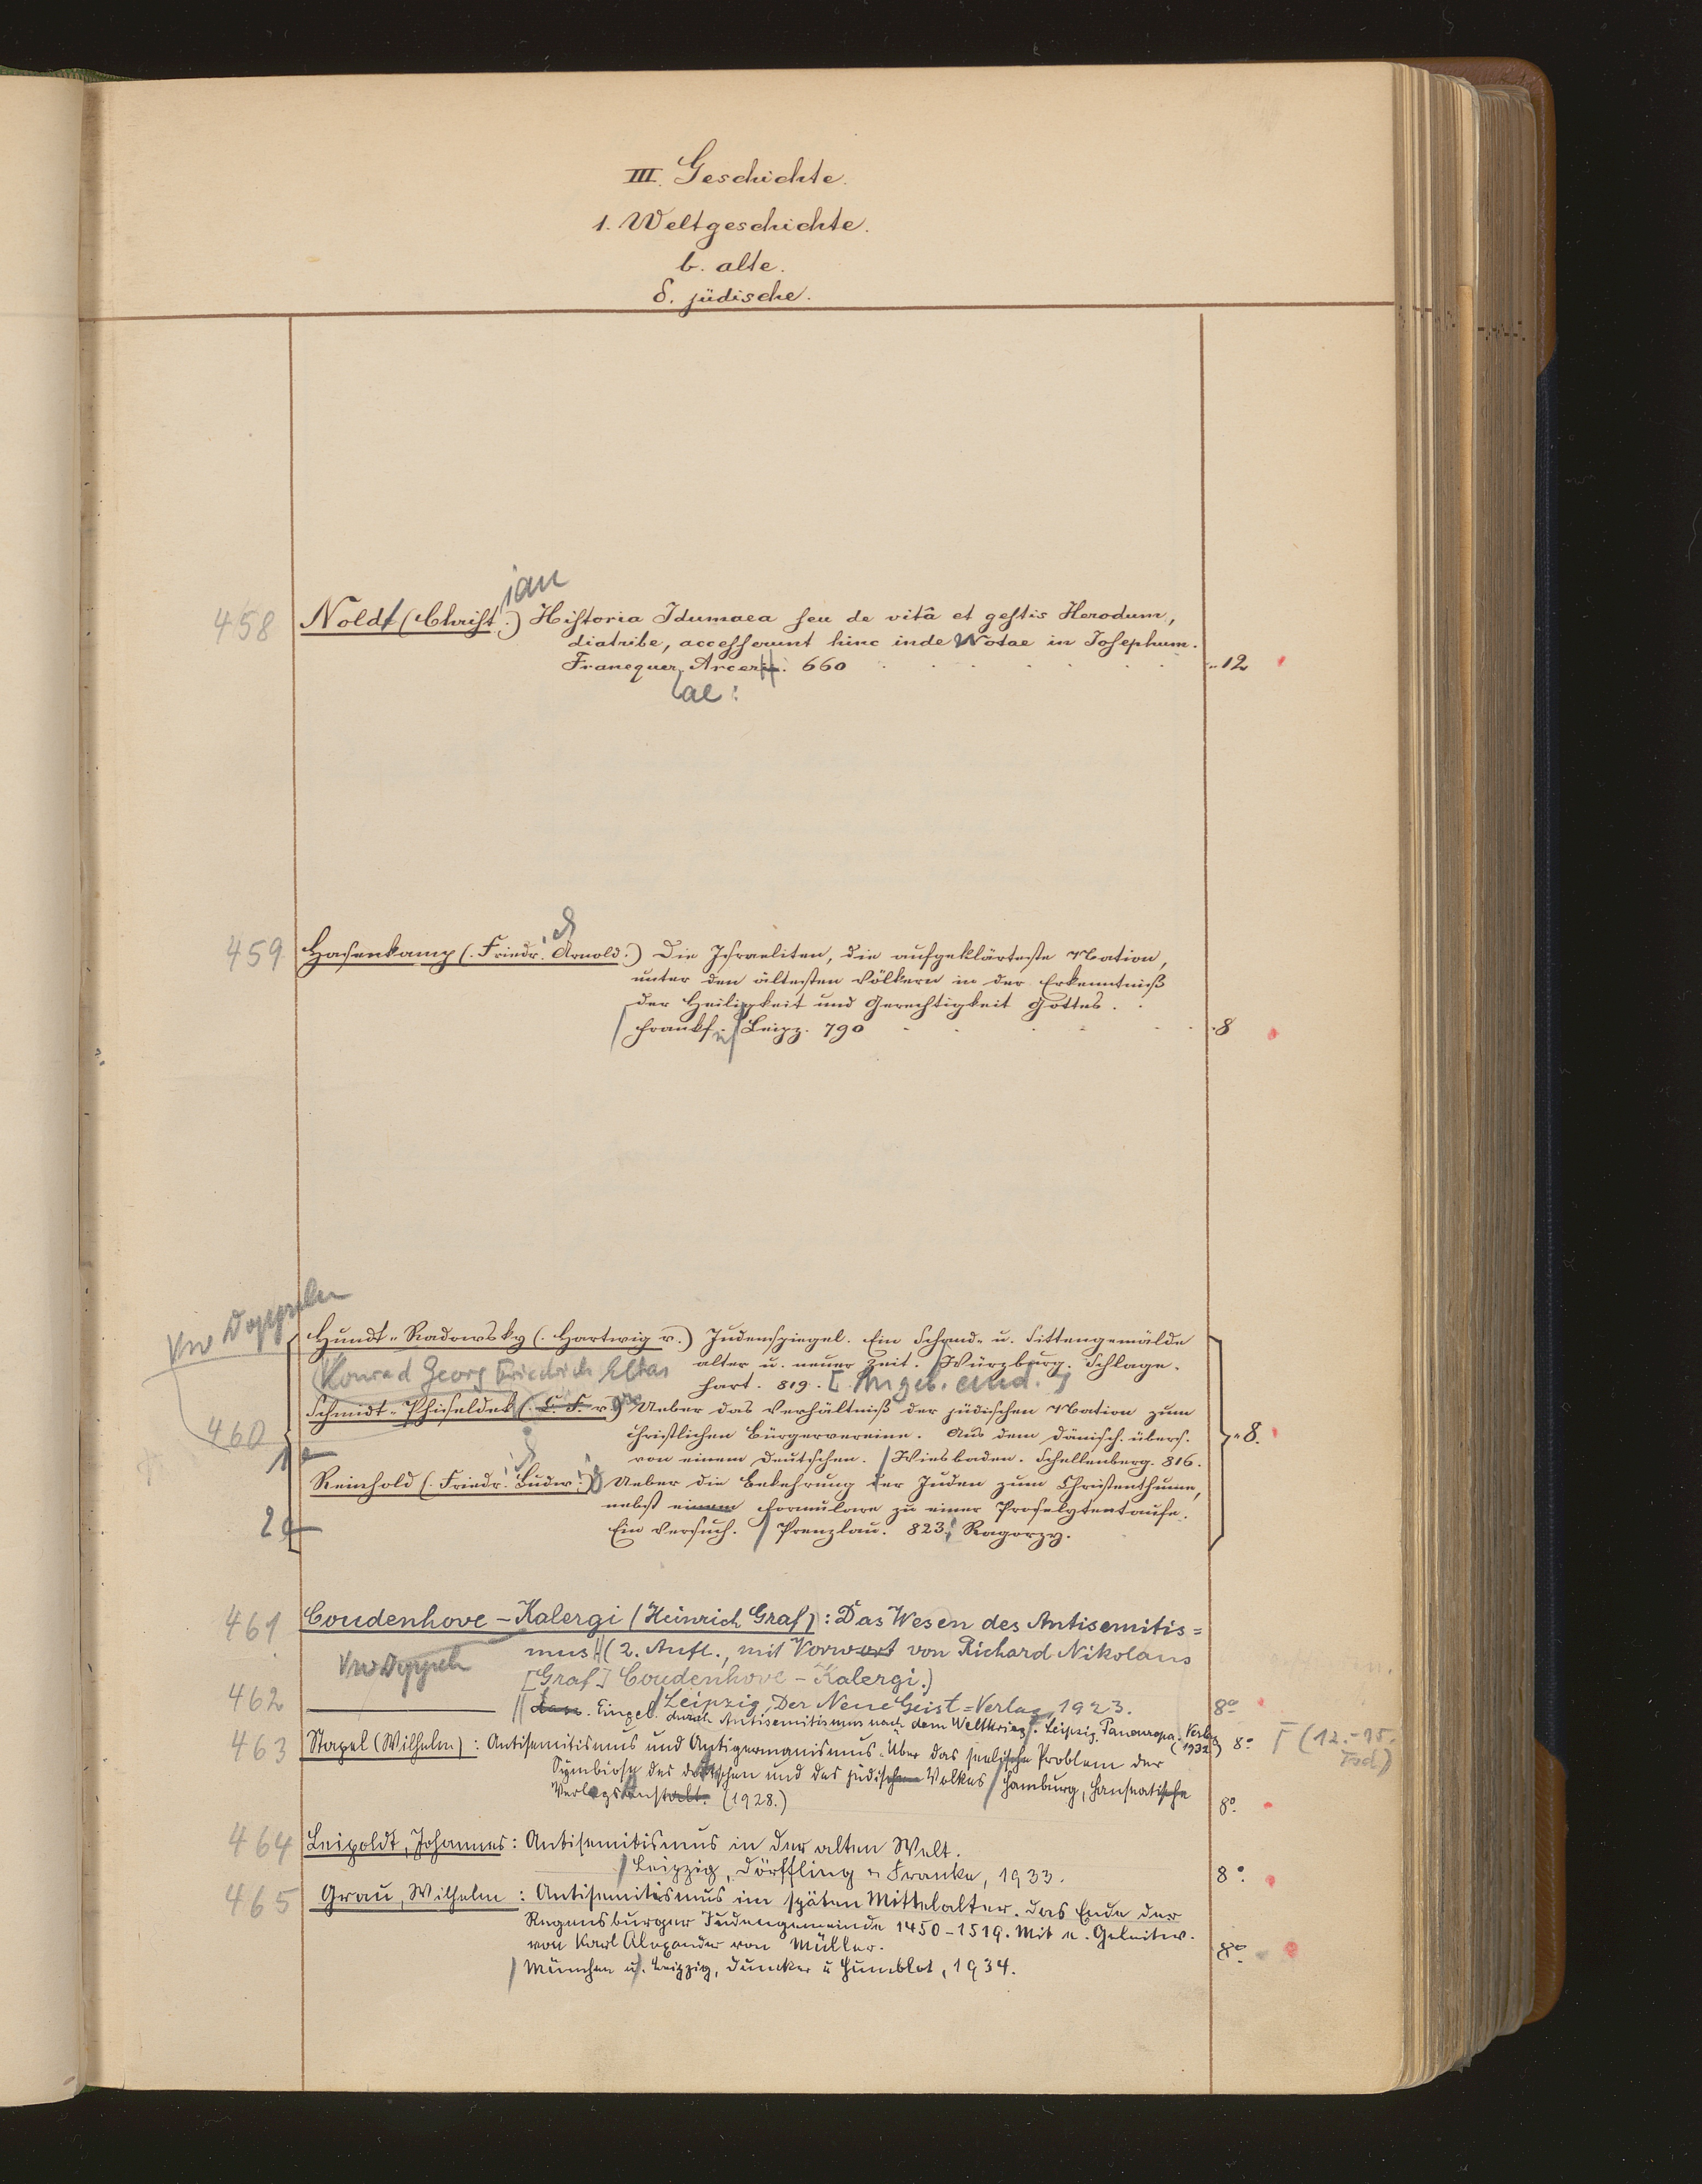 III. Geschichte.
1. Weltgeschichte.
b. alte.
δ. jüdische.
ian
458 Noldt (Christ.) Historia Idumaea seu de vitâ et gestis Herodum,
diatribe, accesserunt hinc inde Notae in Josephum.
Franequer. Arcerii. 660 12
ae:
459 Hasenkamp (Friedr. Arnold.) Die Israeliten, die aufgeklärteste Nation,
unter den ältesten Völkern in der Erkenntniß
der Heiligkeit und Gerechtigkeit Gottes.
Frankf. u. Leipz. 790 8
Vw Doppeln
Hundt-Radowsky (Hartwig v.) Judenspiegel. Ein Schand- u. Sittengemälde
alter u. neuer Zeit. Würzburg. Schlage-
hart. 819. [Angeb. sind:]
Konrad Georg Friedrich Elias
460 Schmidt-Phiseldek (C. F. v.) Ueber das Verhältniß der jüdischen Nation zum
christlichen Bürgervereine. Aus dem Dänisch. übers.
von einem Deutschen. Wiesbaden. Schellenberg. 816. 8.
1
Reinhold (Friedr. Ludw.) Ueber die Bekehrung der Juden zum Christenthume,
nebst einem Formulare zu einer Proselytentaufe.
2 Ein Versuch. Prenzlau. 823. Ragorzy.
461 Coudenhove-Kalergi (Heinrich Graf): Das Wesen des Antisemitis=
mus (2. Aufl., mit Vorwort von Richard Nikolaus
Vw Doppeln
[Graf] Coudenhove-Kalergi.)
Leipzig, Der Neue Geist=Verlag, 1923. 8º
462 dass. Eingel. durch Antisemitismus nach dem Weltkrieg. Leipzig, Paneuropa-Verlag (1932) 8º
463 Stapel (Wilhelm): Antisemitismus und Antigermanismus. Über das seelische Problem der
Symbiose des deutschen und des jüdischen Volkes Hamburg, Hanseatische
Verlagsanstalt. (1928.) 8º
[(12.-15. Tsd)
464 Leipoldt, Johannes: Antisemitismus in der alten Welt.
Leipzig, Dörffling u Franke, 1933. 8º
465 Grau, Wilhelm: Antisemitismus im späten Mittelalter. Das Ende der
Regensburger Judengemeinde 1450-1519. Mit e. Geleitw.
von Karl Alexander von Müller. 8º
München u. Leipzig, Duncker u Humblot, 1934.